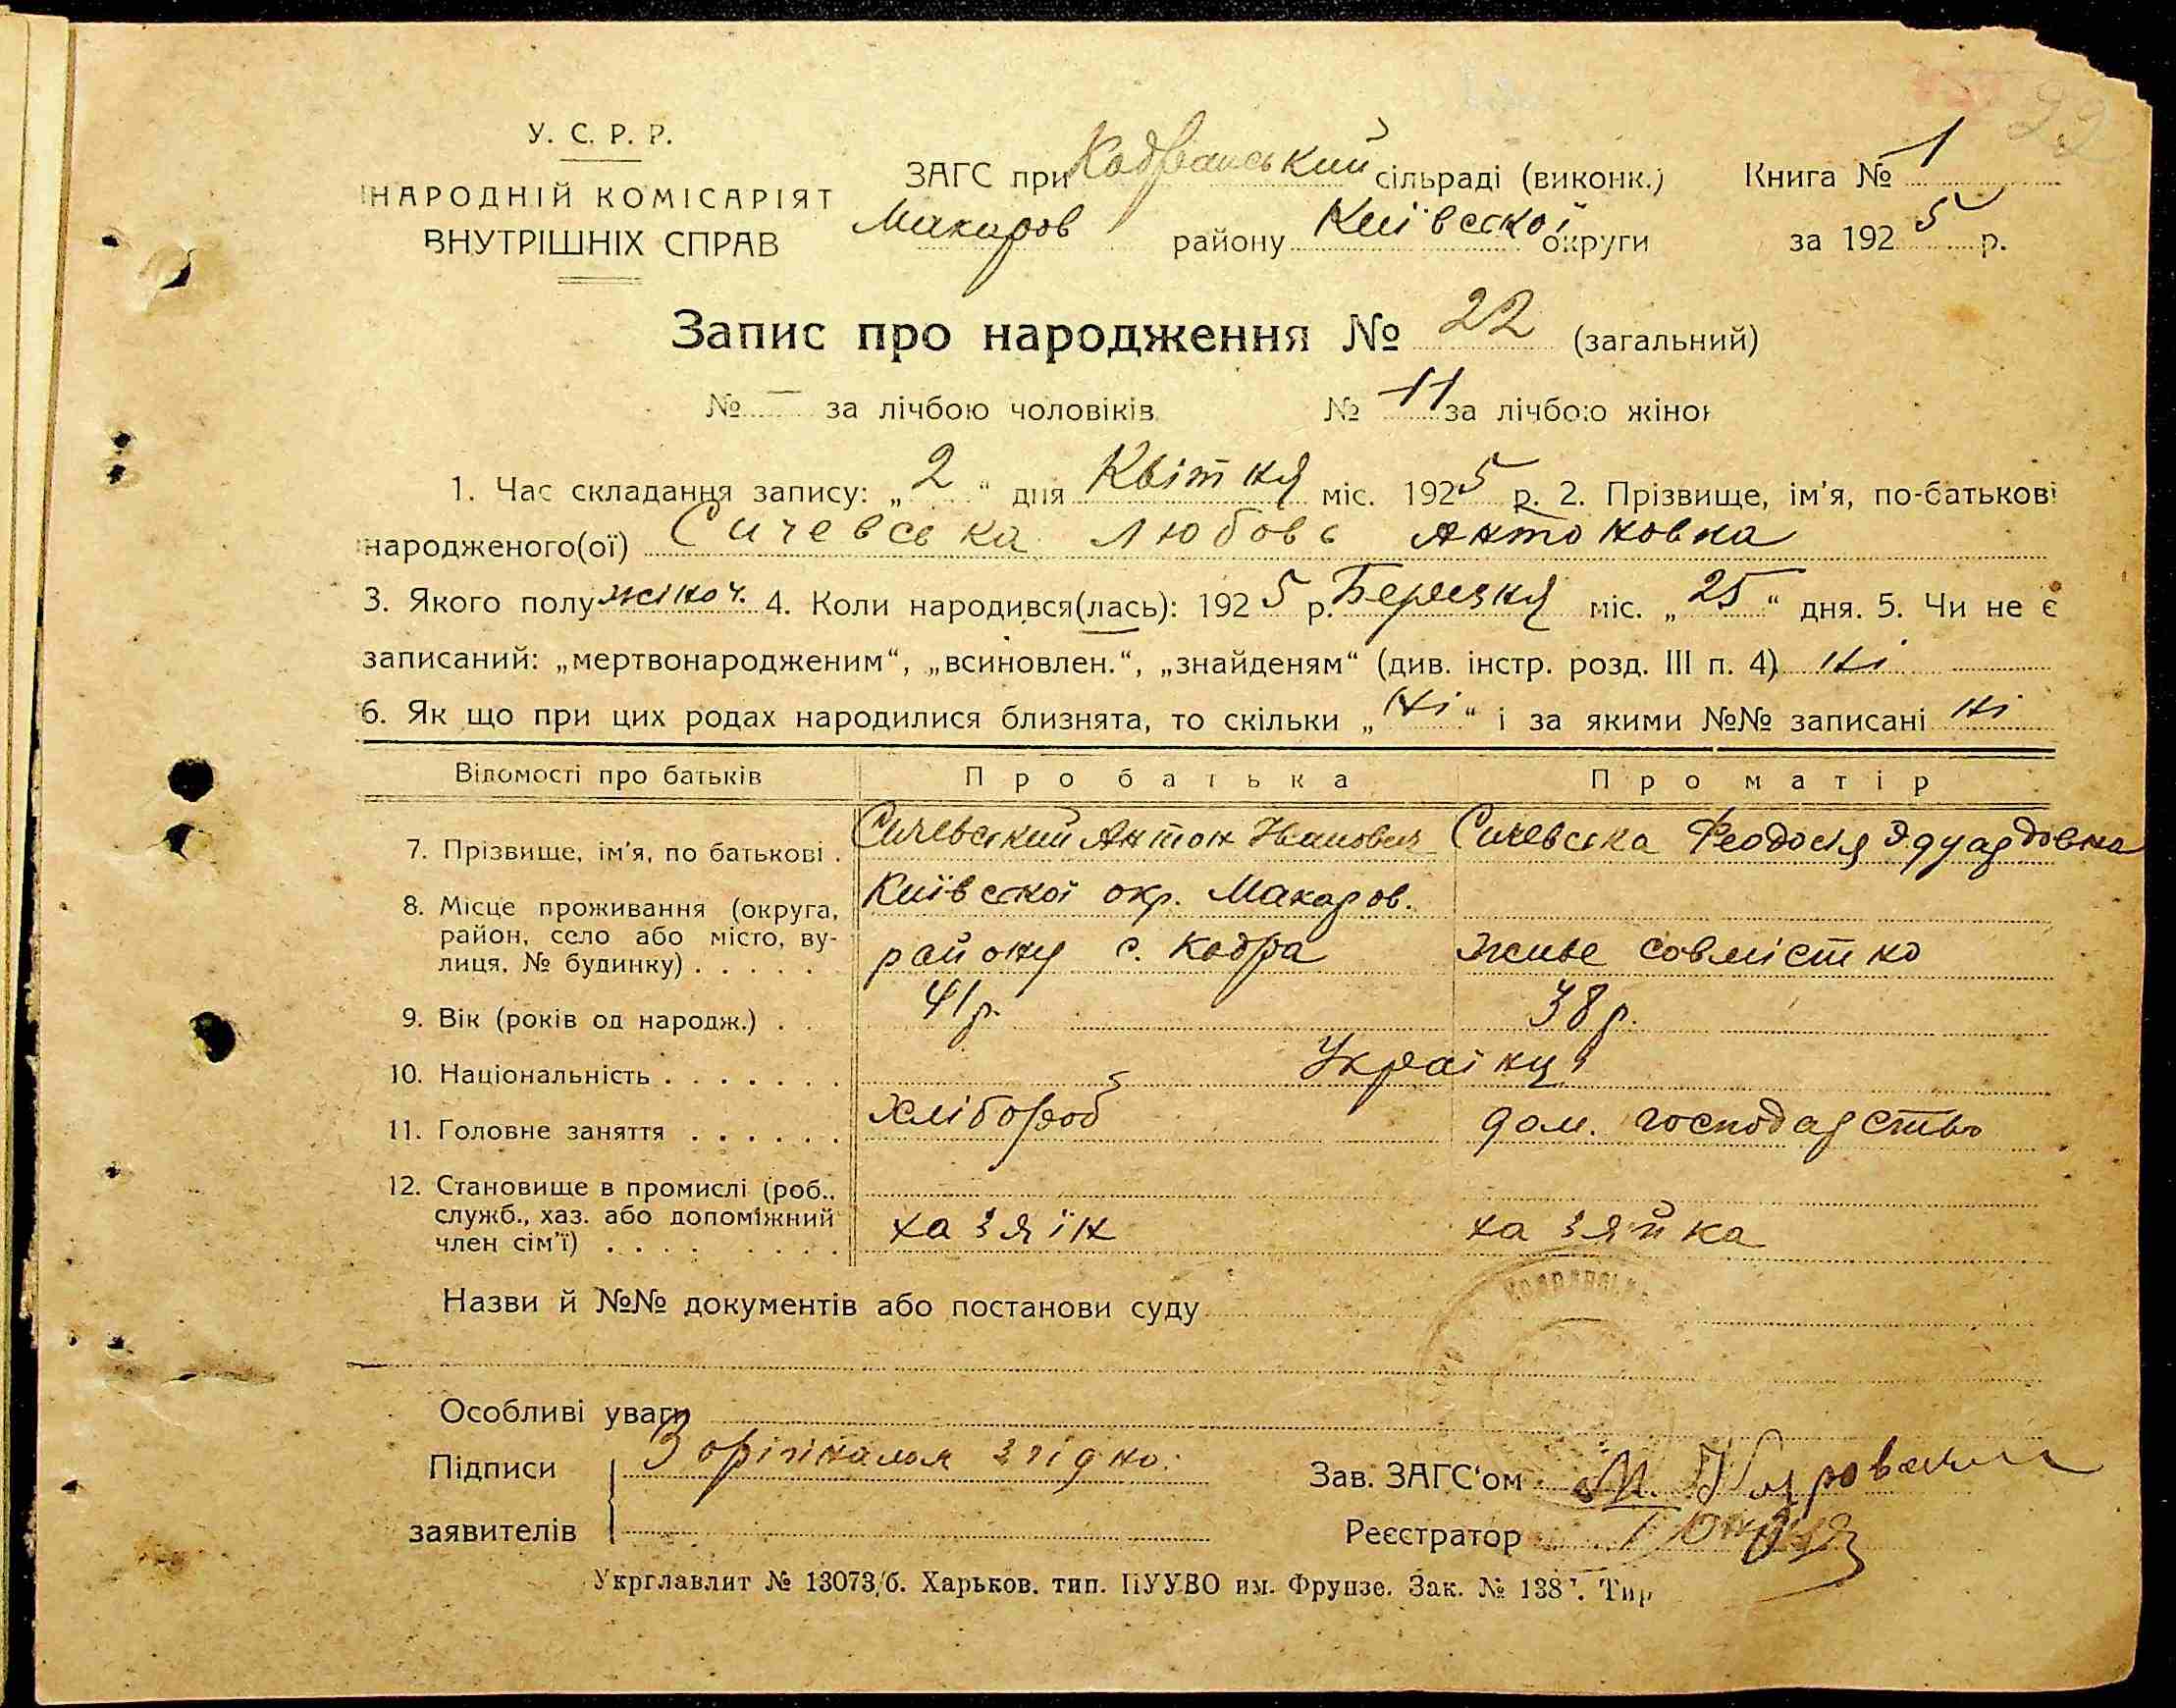 У. С. Р. Р.
НАРОДНІЙ КОМІСАРІЯТ
ВНУТРІШНІХ СПРАВ
ЗАГС при Кодранський сільраді (виконк.)
Макаров району Київської округи
Книга № 1
за 1925 р.
Запис про народження № 22 (загальний)
№ — за лічбою чоловіків № 11 за лічбою жінок
1. Час складання запису: „2“ дня Квітня міс. 1925 р. 2. Прізвище, ім'я, по-батькові
народженого(ої) Сичевська Любовь Антоновна
3. Якого полу жіноч. 4. Коли народився(лась): 1925 р. Березня міс. „25“ дня. 5. Чи не є
записаний: „мертвонародженим“, „всиновлен.“, „знайденям“ (див. інстр. розд. III п. 4) ні
6. Як що при цих родах народилися близнята, то скільки „ні“ і за якими №№ записані ні
Відомості про батьків Про батька Про матір
7. Прізвище, ім'я, по батькові . Сичевський Антон Иванович Сичевська Феодосія Эдуардовна
8. Місце проживання (округа, Київської окр. Макаров.
район, село або місто, ву- району с. Кодра живе совмістно
лиця, № будинку) . . . . .
9. Вік (років од народж.) . . 41 р. 38 р.
10. Національність . . . . . . . Українці
11. Головне заняття . . . . . . хлібороб дом. господарство
12. Становище в промислі (роб.,
служб., хаз. або допоміжний хазяїн хазяйка
член сім'ї) . . . . . . . .
Назви й №№ документів або постанови суду
Особливі уваги
Підписи З оригіналом згідно.
заявителів
Зав. ЗАГС'ом
Реєстратор
Укрглавлит № 13073/б. Харьков. тип. ПУУВО им. Фрунзе. Зак. № 138 . Тир